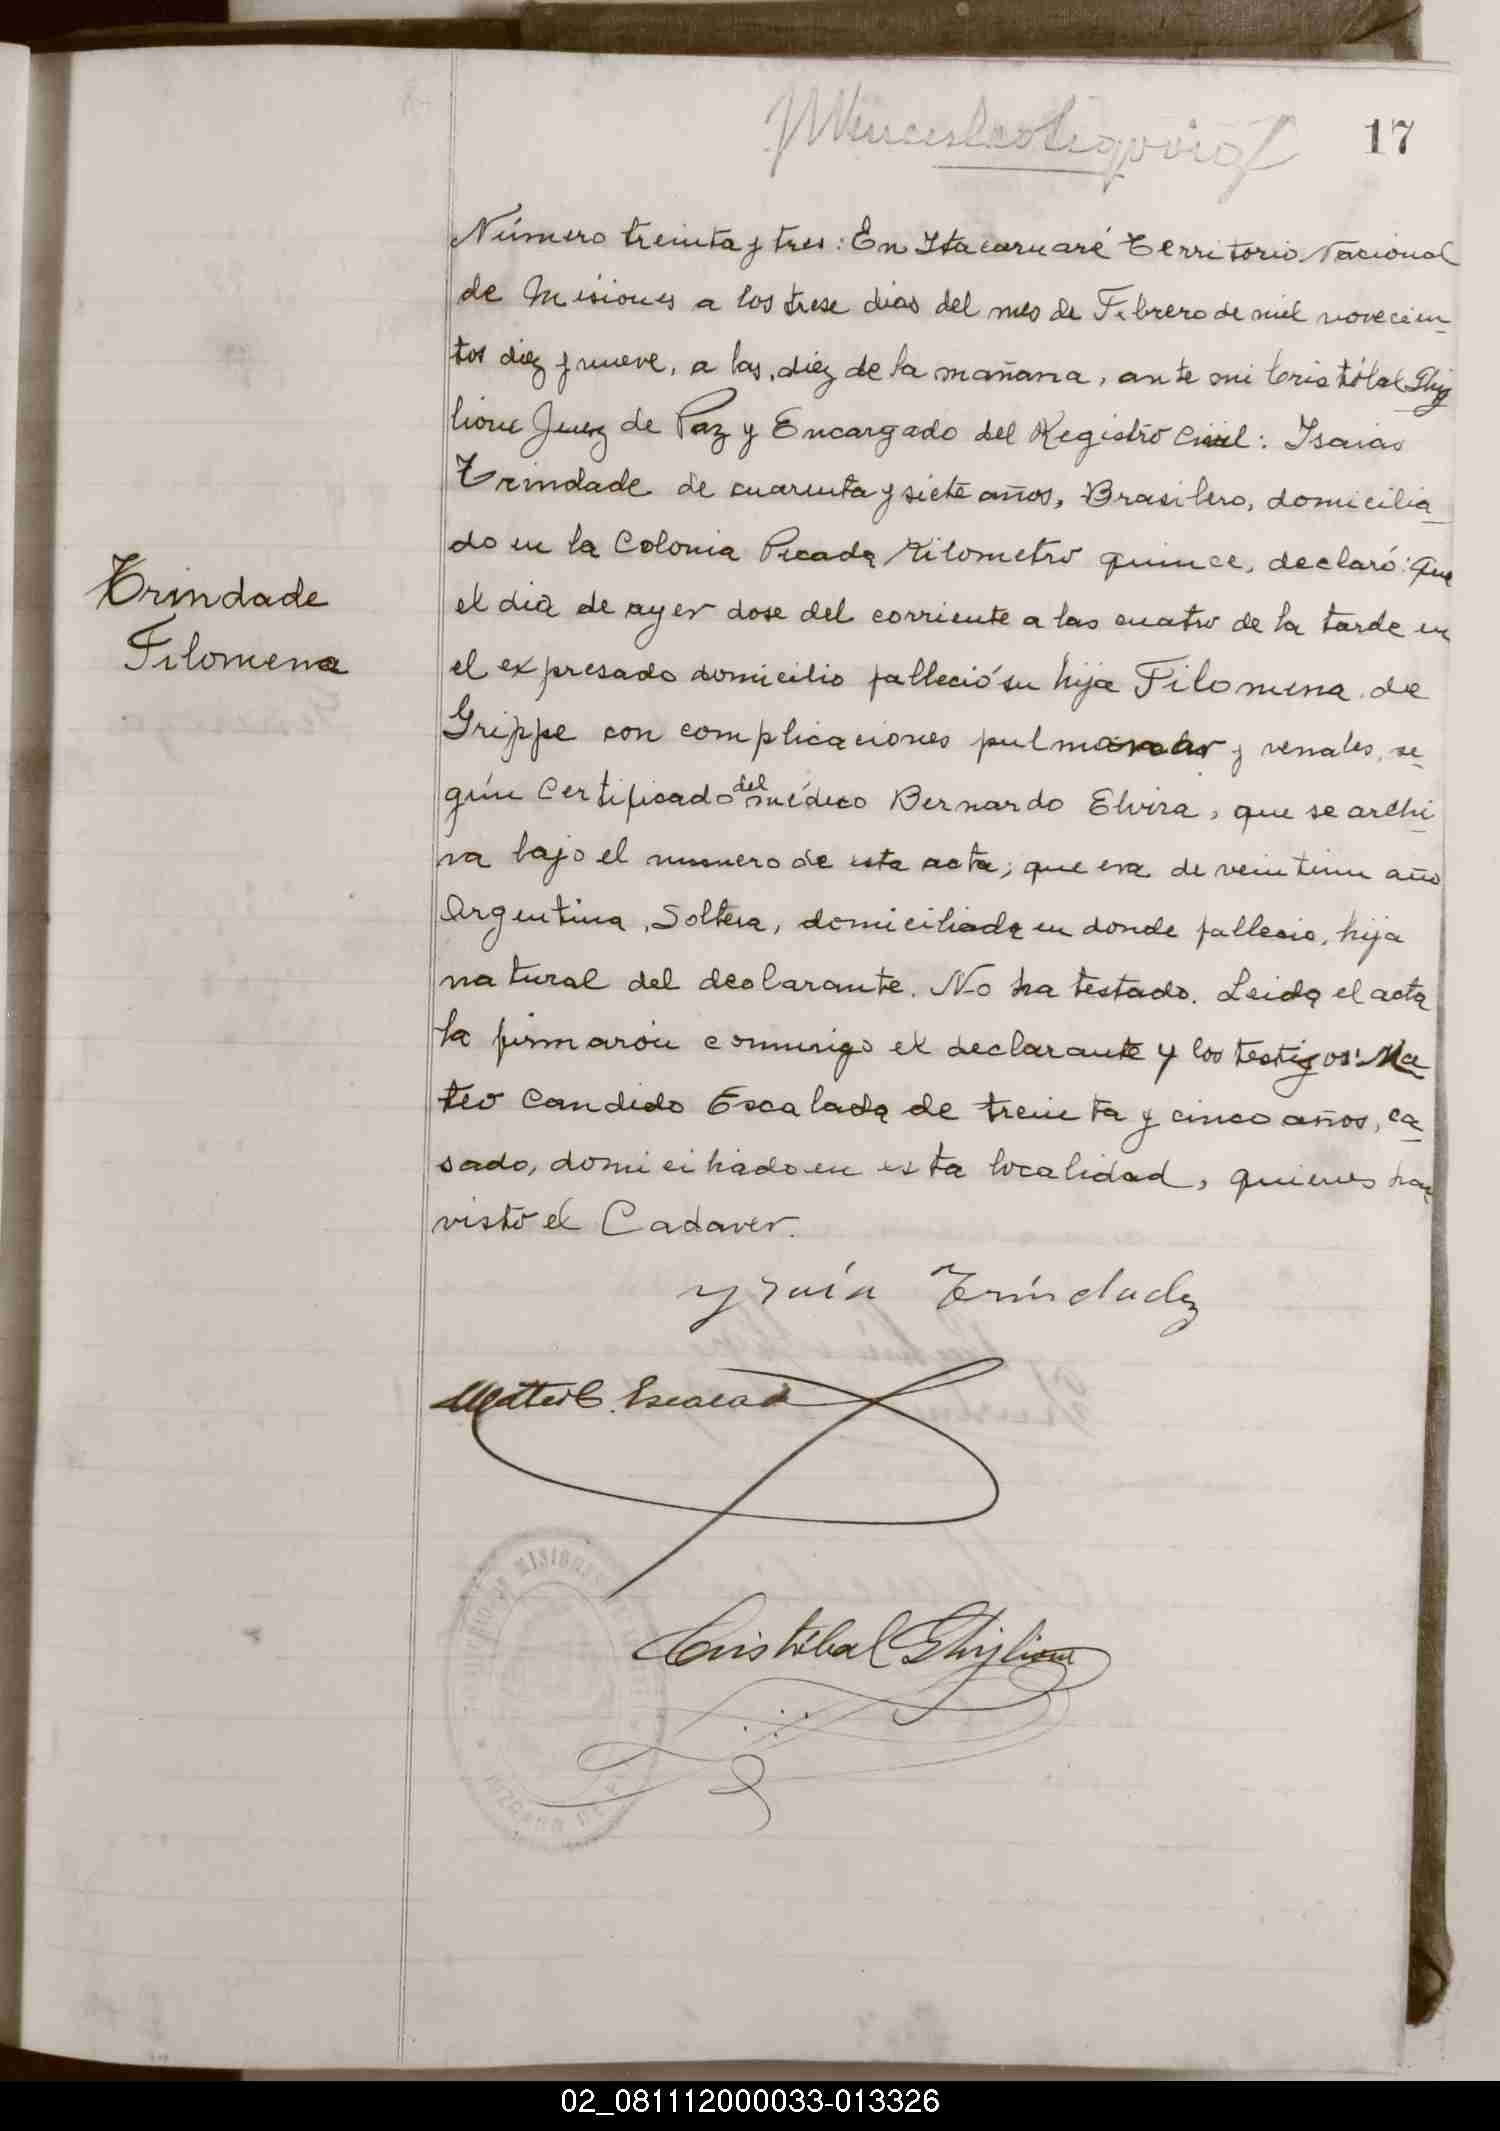 17
Número treinta y tres: En Itacaruaré Territorio Nacional
de Misiones a los trese dias del mes de Febrero de mil novecien-
tos diez y nueve, a las, diez de la mañana, ante mi Cristóbal Ghig
lione Juez de Paz y Encargado del Registro Civil: Isaias
Trindade de cuarenta y siete años, Brasilero, domicilia-
do en la Colonia Picada Kilometro quince, declaró: que
el dia de ayer dose del corriente a las cuatro de la tarde en
el expresado domicilio falleció su hija Filomena de
Trindade
Filomena
Grippe con complicaciones pulmonares y renales, se-
gún Certificado del médico Bernardo Elvira, que se archi-
va bajo el numero de esta acta; que era de veintiun año
Argentina, Soltera, domiciliada en donde fallecio, hija
natural del declarante. No ha testado. Leida el acta
la firmarón conmigo el declarante y los testigos: Ma-
teo Candido Escalada de treinta y cinco años, ca-
sado, domiciliado en esta localidad, quienes han
visto el Cadaver.
Ysaía Trindade
Mateo C. Escalada
MISIONES
JUZGADO DE PAZ
Cristóbal Ghiglione
02_081112000033-013326